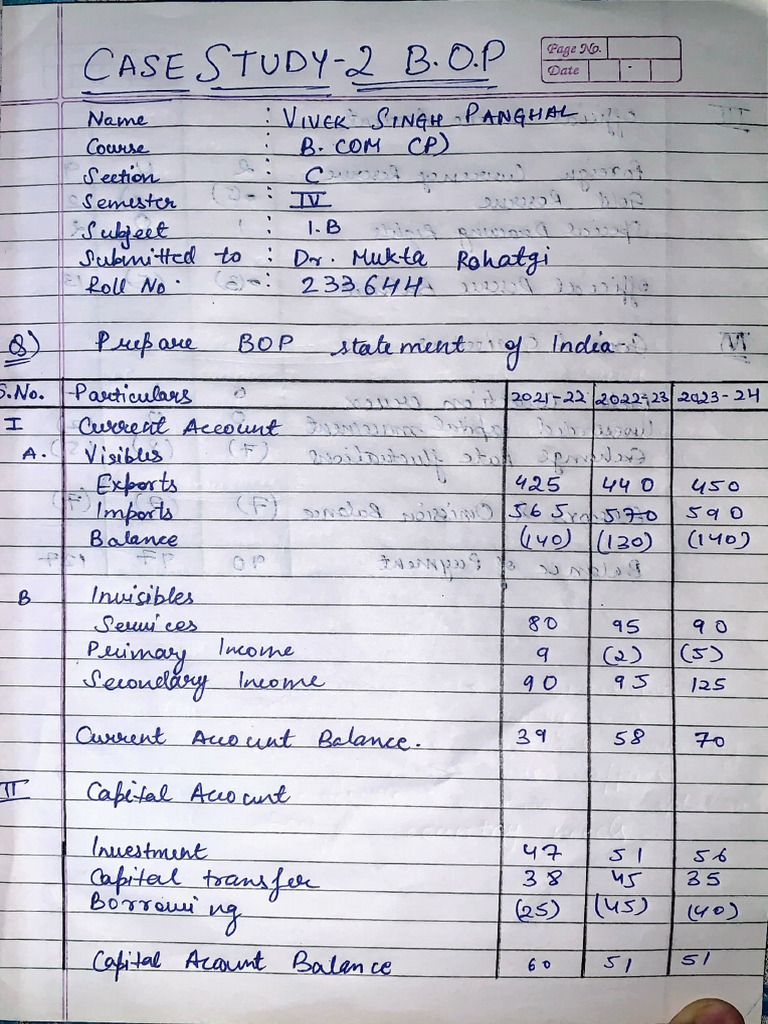 CASE STUDY-2 B.O.P
Page No.
Date
Name : VIVEK SINGH PANGHAL
Course : B. COM (P)
Section : C
Semester : IV
Subject : I.B
Submitted to : Dr. Mukta Rohatgi
Roll No. : 233644
Q) Prepare BOP statement of India
S.No. Particulars 2021-22 2022-23 2023-24
I Current Account
A. Visibles
Exports 425 440 450
Imports 565 570 590
Balance (140) (130) (140)
B Invisibles
Services 80 95 90
Primary Income 9 (2) (5)
Secondary Income 90 95 125
Current Account Balance. 39 58 70
II Capital Account
Investment 47 51 56
Capital transfer 38 45 35
Borrowing (25) (45) (40)
Capital Account Balance 60 51 51